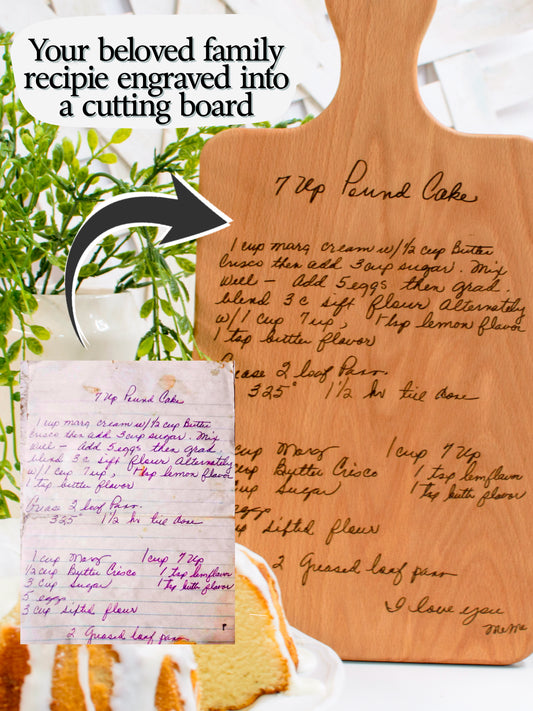 Your beloved family
recipie engraved into
a cutting board
7 Up Pound Cake
1 cup marg cream w/ 1/2 cup Butter
Crisco then add 3 cup sugar. Mix
well - Add 5 eggs then grad.
blend 3 c sift flour Alternately
w/ 1 cup 7 up, 1 tsp lemon flavor
1 tsp butter flavor
Grease 2 loaf Pans.
325° 1 1/2 hr till done
cup Marg 1 cup 7 Up
cup Butter Crisco 1 tsp lemflavor
cup sugar 1 tsp butter flavor
eggs
cup sifted flour
2 Greased loaf pans
I love you
MeMe
7 Up Pound Cake
1 cup marg cream w/ 1/2 cup Butter
Crisco then add 3 cup sugar. Mix
well - Add 5 eggs then grad.
blend 3 c sift flour Alternately
w/ 1 cup 7 up, 1 tsp lemon flavor
1 tsp butter flavor
Grease 2 loaf Pans.
325° 1 1/2 hr till done
1 cup Marg 1 cup 7 Up
1/2 cup Butter Crisco 1 tsp lemflavor
3 cup sugar 1 tsp butter flavor
5 eggs
3 cup sifted flour
2 Greased loaf pans